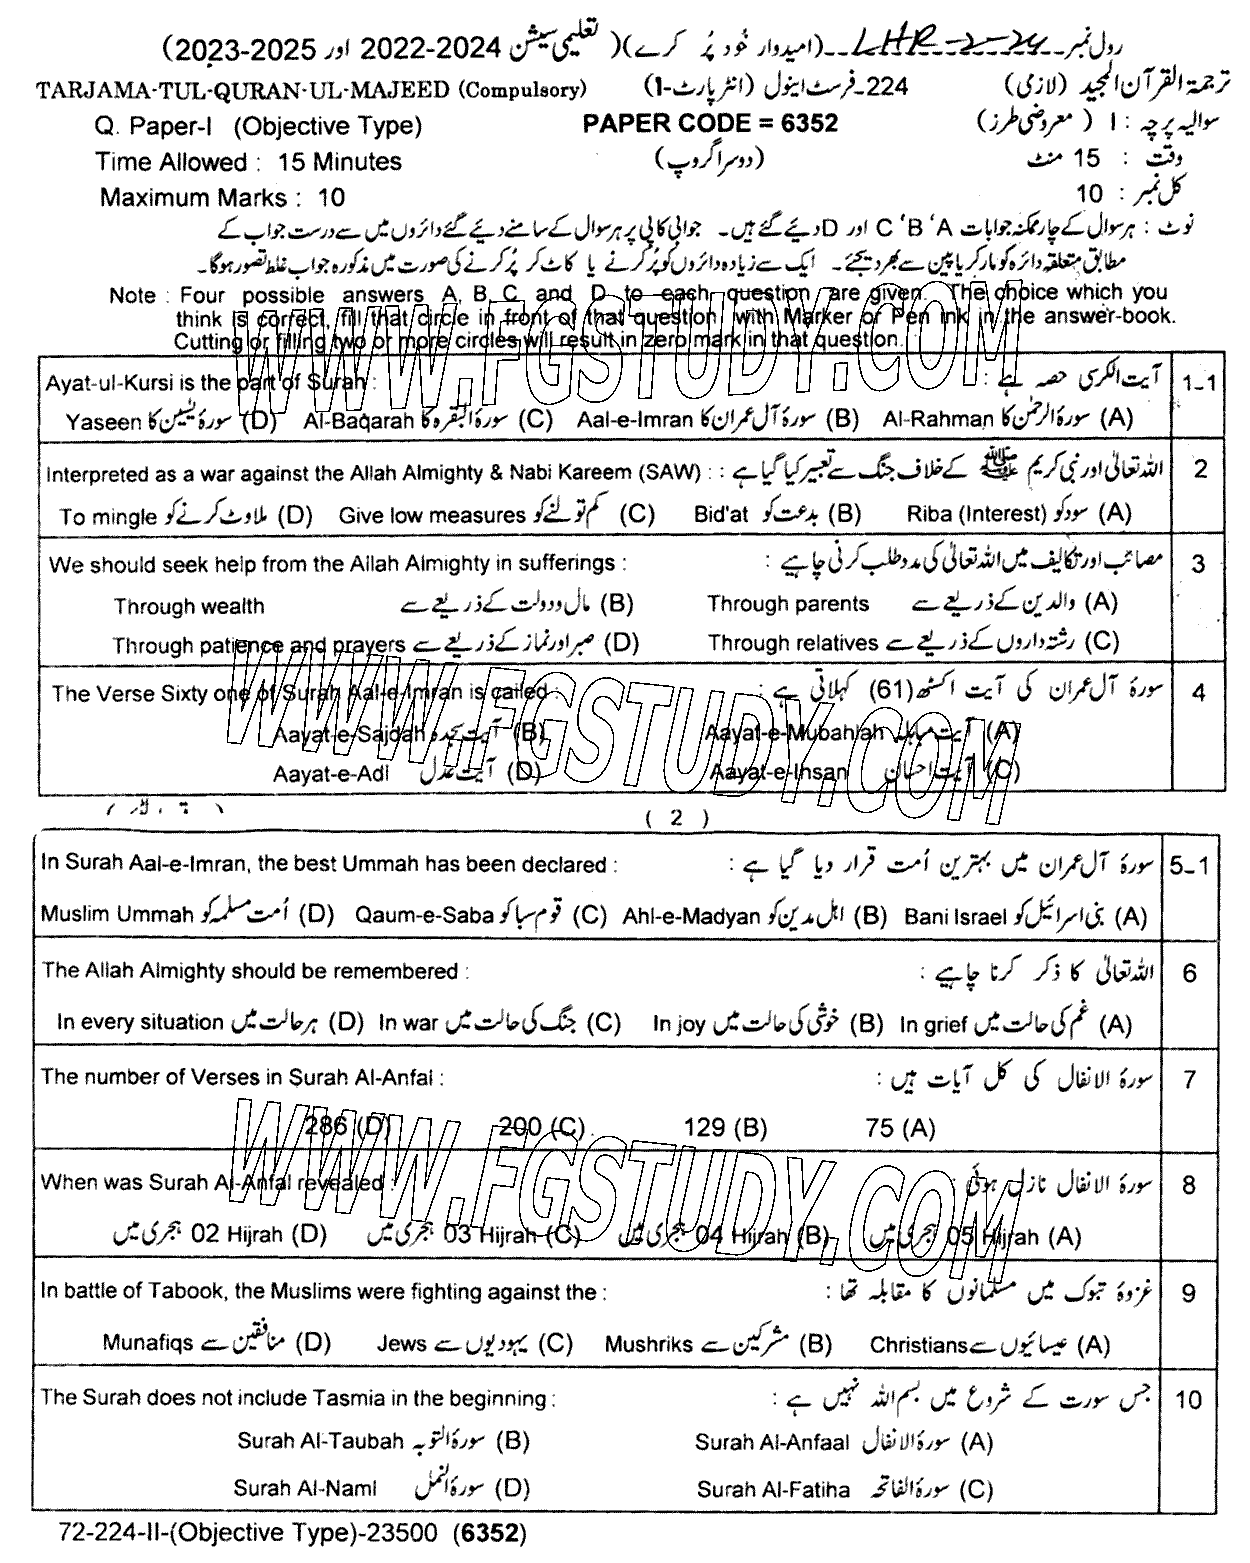 رول نمبر LHR-2-24 (امیدوار خود پُر کرے) (تعلیمی سیشن 2024-2022 اور 2025-2023)
TARJAMA-TUL-QURAN-UL-MAJEED (Compulsory) 224۔فرسٹ اینول (انٹرپارٹ-I) ترجمۃ القرآن المجید (لازمی)
Q. Paper-I (Objective Type) PAPER CODE = 6352 سوالیہ پرچہ : I (معروضی طرز)
Time Allowed : 15 Minutes (دوسرا گروپ) وقت : 15 منٹ
Maximum Marks : 10 کل نمبر : 10
نوٹ : ہر سوال کے چار ممکنہ جوابات A ' B ' C اور D دیئے گئے ہیں۔ جوابی کاپی پر ہر سوال کے سامنے دیئے گئے دائروں میں سے درست جواب کے
مطابق متعلقہ دائرہ کو مارکر یا پین سے بھر دیجئے۔ ایک سے زیادہ دائروں کو پُر کرنے یا کاٹ کر پُر کرنے کی صورت میں مذکورہ جواب غلط تصور ہوگا۔
Note : Four possible answers A, B, C and D to each question are given. The choice which you
think is correct, fill that circle in front of that question with Marker or Pen ink in the answer-book.
Cutting or filling two or more circles will result in zero mark in that question.
WWW.FGSTUDY.COM
Ayat-ul-Kursi is the part of Surah : آیت الکرسی حصہ ہے : 1-1
Yaseen سورۃ یٰسین کا (D) Al-Baqarah سورۃ البقرہ کا (C) Aal-e-Imran سورۃ آل عمران کا (B) Al-Rahman سورۃ الرحمٰن کا (A)
Interpreted as a war against the Allah Almighty & Nabi Kareem (SAW) : اللہ تعالیٰ اور نبی کریم ﷺ کے خلاف جنگ سے تعبیر کیا گیا ہے : 2
To mingle ملاوٹ کرنے کو (D) Give low measures کم تولنے کو (C) Bid'at بدعت کو (B) Riba (Interest) سود کو (A)
We should seek help from the Allah Almighty in sufferings : مصائب اور تکالیف میں اللہ تعالیٰ کی مدد طلب کرنی چاہیے : 3
Through wealth مال و دولت کے ذریعے سے (B) Through parents والدین کے ذریعے سے (A)
Through patience and prayers صبر اور نماز کے ذریعے سے (D) Through relatives رشتہ داروں کے ذریعے سے (C)
The Verse Sixty one of Surah Aal-e-Imran is called : سورۃ آل عمران کی آیت اکسٹھ (61) کہلاتی ہے : 4
WWW.FGSTUDY.COM
Aayat-e-Sajdah آیت سجدہ (B) Aayat-e-Mubahlah آیت مباہلہ (A)
Aayat-e-Adl آیت عدل (D) Aayat-e-Ihsan آیت احسان (C)
( 2 )
In Surah Aal-e-Imran, the best Ummah has been declared : سورۃ آل عمران میں بہترین اُمت قرار دیا گیا ہے : 5-1
Muslim Ummah اُمت مسلمہ کو (D) Qaum-e-Saba قوم سبا کو (C) Ahl-e-Madyan اہل مدین کو (B) Bani Israel بنی اسرائیل کو (A)
The Allah Almighty should be remembered : اللہ تعالیٰ کا ذکر کرنا چاہیے : 6
In every situation ہر حالت میں (D) In war جنگ کی حالت میں (C) In joy خوشی کی حالت میں (B) In grief غم کی حالت میں (A)
The number of Verses in Surah Al-Anfal : سورۃ الانفال کی کل آیات ہیں : 7
286 (D) 200 (C) 129 (B) 75 (A)
WWW.FGSTUDY.COM
When was Surah Al-Anfal revealed : سورۃ الانفال نازل ہوئی : 8
02 Hijrah ہجری میں (D) 03 Hijrah ہجری میں (C) 04 Hijrah ہجری میں (B) 05 Hijrah ہجری میں (A)
In battle of Tabook, the Muslims were fighting against the : غزوۂ تبوک میں مسلمانوں کا مقابلہ تھا : 9
Munafiqs منافقین سے (D) Jews یہودیوں سے (C) Mushriks مشرکین سے (B) Christians عیسائیوں سے (A)
The Surah does not include Tasmia in the beginning : جس سورت کے شروع میں بسم اللہ نہیں ہے : 10
Surah Al-Taubah سورۃ التوبہ (B) Surah Al-Anfaal سورۃ الانفال (A)
Surah Al-Naml سورۃ النمل (D) Surah Al-Fatiha سورۃ الفاتحہ (C)
72-224-II-(Objective Type)-23500 (6352)